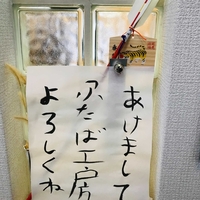 あけまして
ふたば工房
よろしくね